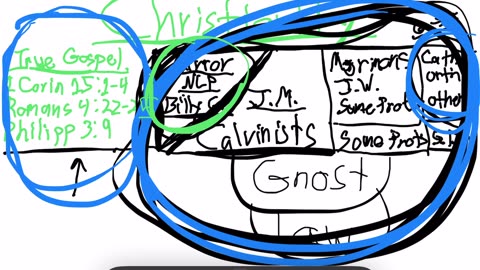 True Gospel
1 Corin 15:1-4
Romans 4:22-2
Philipp 3:9
NLP
Billy G
J.M.
Calvinists
Mormons
J.W.
Some Prot
Some Prots
Cath
orth
other
Gnost
Law